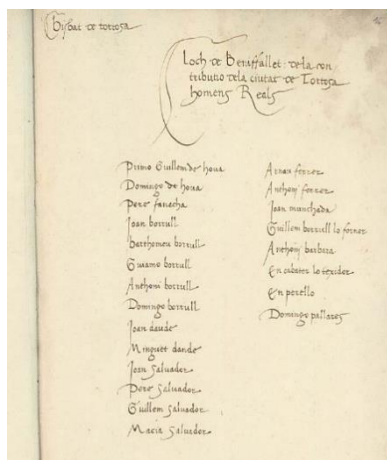 Bisbat de tortosa
Loch de Beniffallet: de la con
tribuno de la ciutat de Tortosa
homens Reals
Primo Guillem de hova
Domingo de hova
Pere
Joan borrull
Berthomeu borrull
borrull
Anthoni borrull
Domingo borrull
Joan daude
Minguet daude
Joan Salvador
Pere Salvador
Guillem Salvador
Macia Salvador
Arnau ferrer
Anthoni ferrer
Joan
Guillem borrull lo forner
Anthoni barbera
En lo texidor
En perello
Domingo pallares